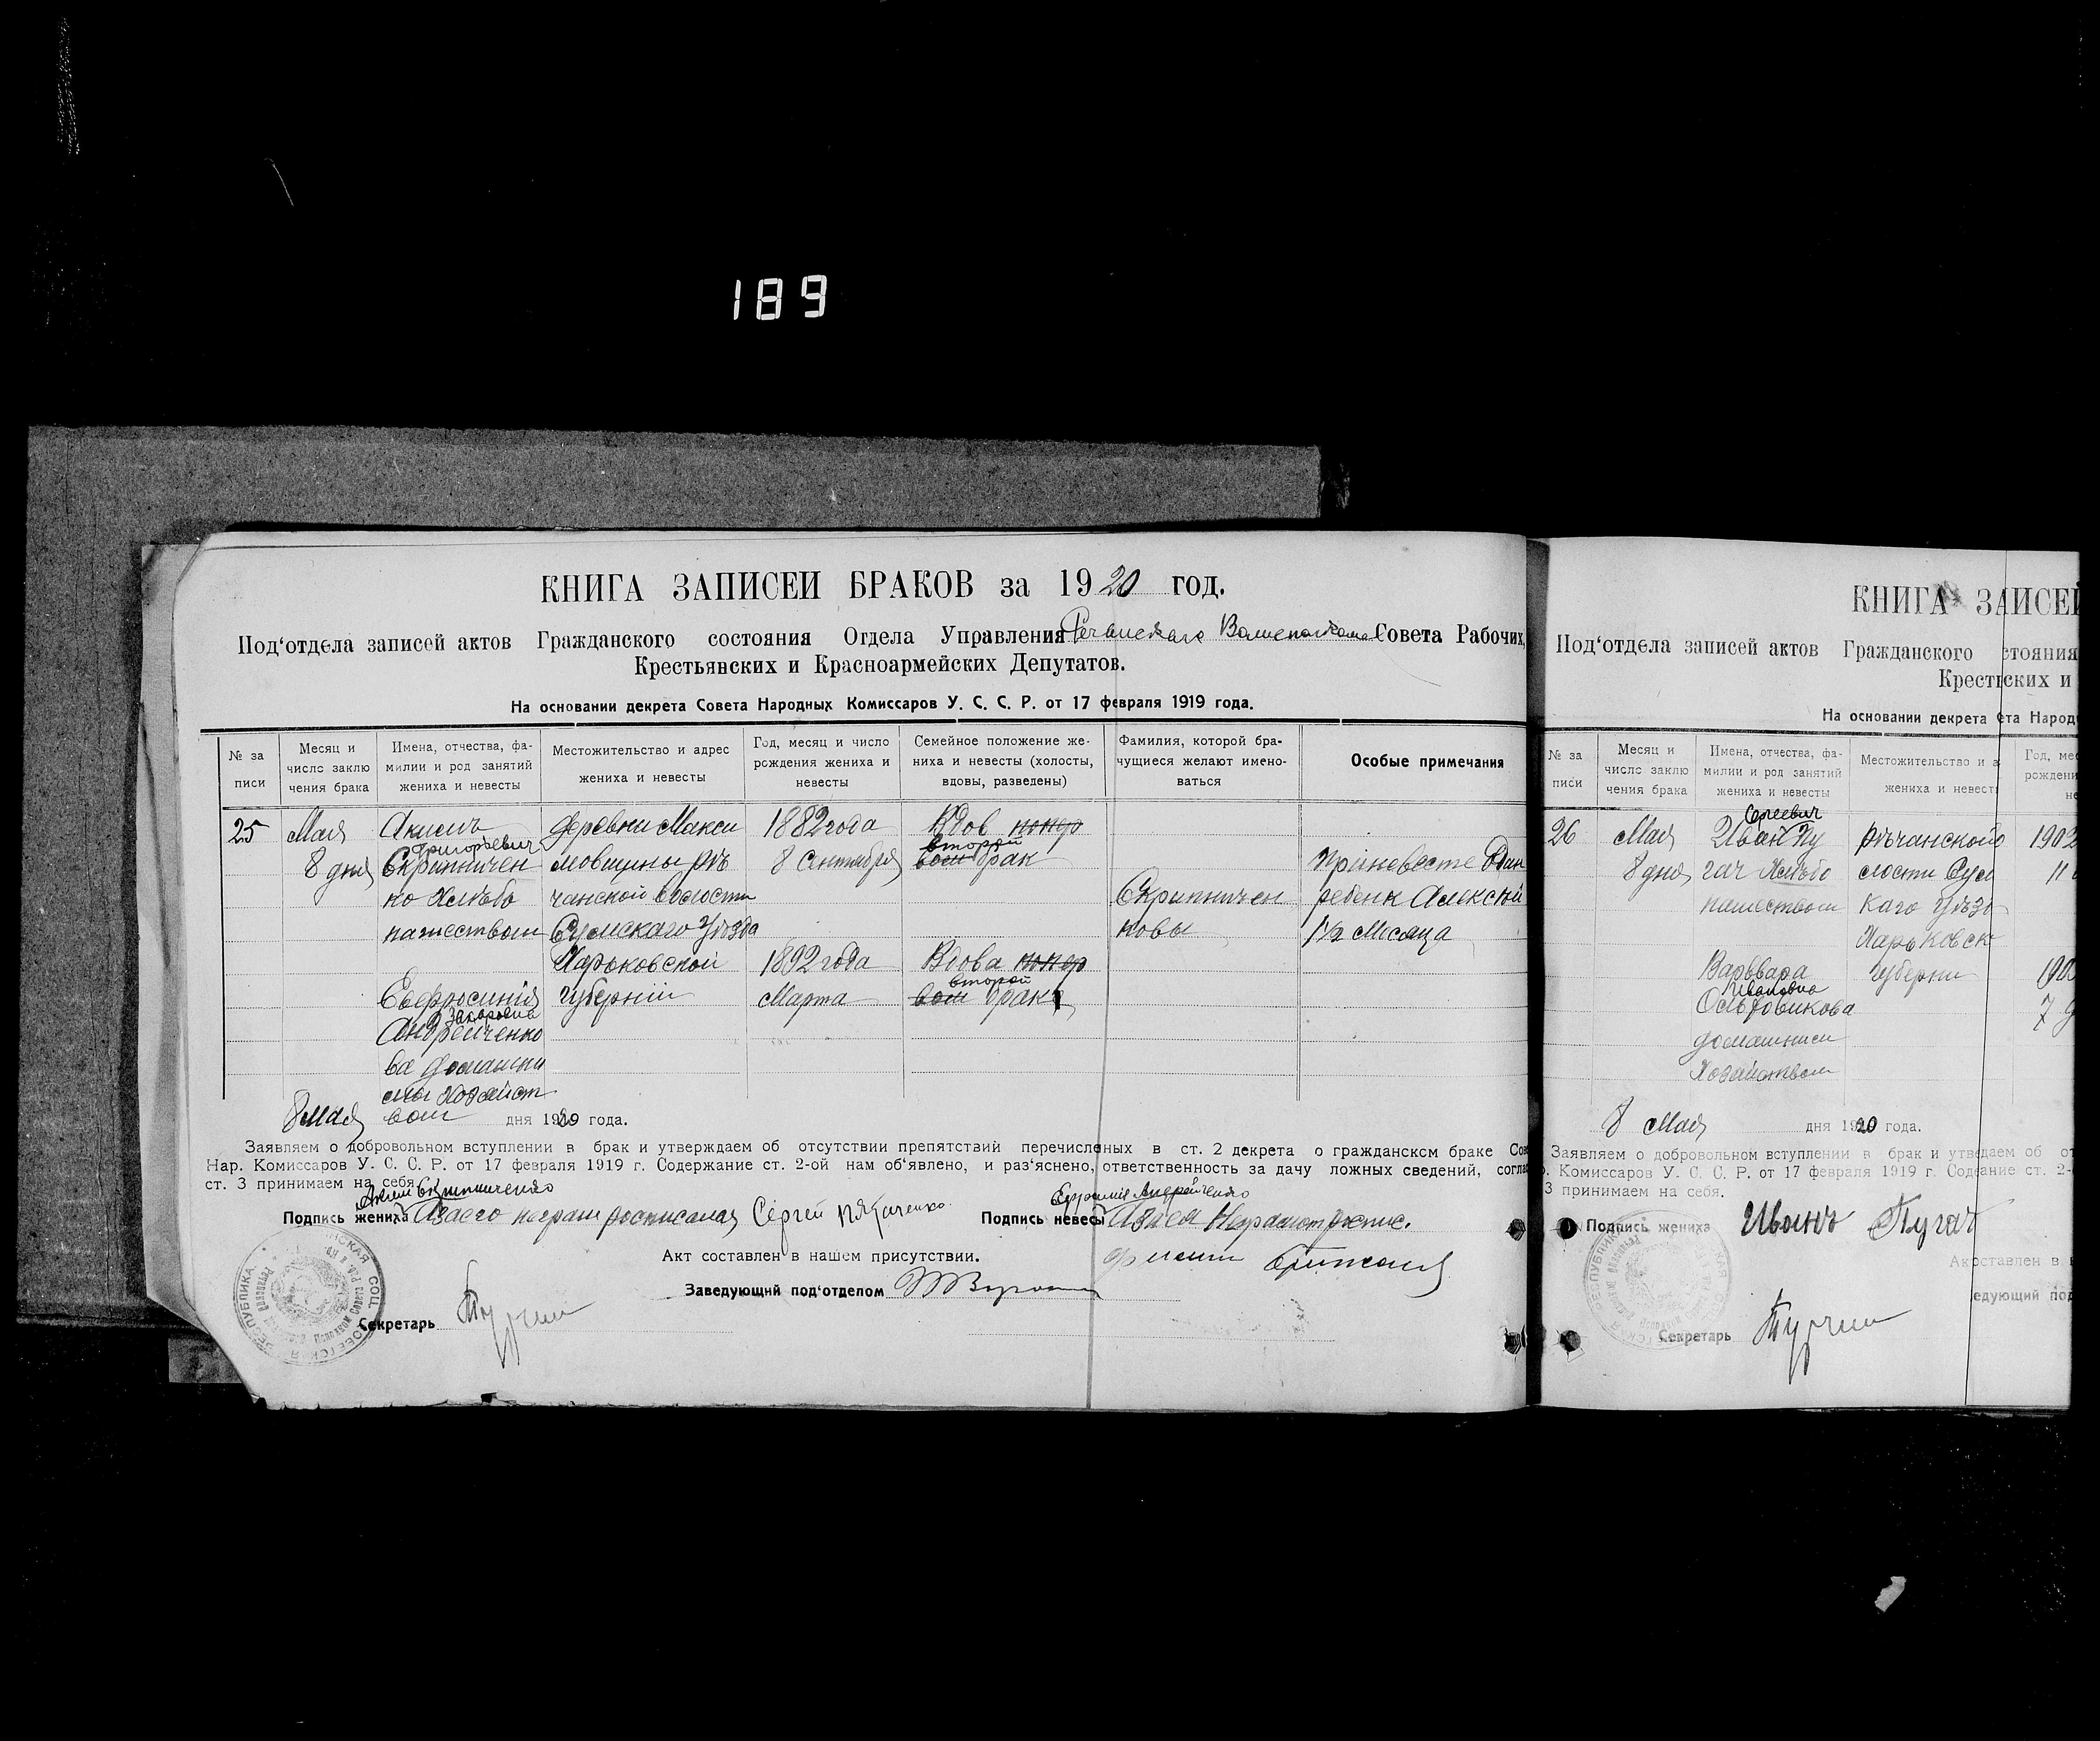 189
КНИГА ЗАПИСЕЙ БРАКОВ за 1920 год.
Под‘отдела записей актов Гражданского состояния Отдела Управления Совета Рабочих,
Крестьянских и Красноармейских Депутатов.
На основании декрета Совета Народных Комиссаров У. С. С. Р. от 17 февраля 1919 года.
№ за писи
Месяц и число заклю чения брака
Имена, отчества, фа- милии и род занятий жениха и невесты
Местожительство и адрес жениха и невесты
Год, месяц и число рождения жениха и невесты
Семейное положение же- ниха и невесты (холосты, вдовы, разведены)
Фамилия, которой бра- чущиеся желают имено- ваться
Особые примечания
25
Мая
8 дня
Акимъ
Григорьевич
Скрипничен
ко Хлѣбо
пашеством
Евфросинія
Захаровна
Андрейченко
ва домашни
хозяйст
вом
деревни Макси
мовщины рѣ
чанской волости
Сумскаго Уѣзда
Харьковской
губерніи
1882 года
8 Сентября
1892 года
Марта
Вдов
второй
брак
Вдова
второй
брак
Скрипничен
ковы
При невесте Один
ребенк Алексѣй
1½ Месяца
8 Мая дня 1920 года.
Заявляем о добровольном вступлении в брак и утверждаем об отсутствии препятствий перечисленых в ст. 2 декрета о гражданском браке Сов
Нар. Комиссаров У. С. С. Р. от 17 февраля 1919 г. Содержание ст. 2-ой нам об‘явлено, и раз‘яснено, ответственность за дачу ложных сведений, соглас
ст. 3 принимаем на себя.
Аким Скрипниченко
Подпись жениха А за его неграм росписался Сергей
Андрейченко
Подпись невесы А за ея Неграмот
Акт составлен в нашем присутствии.
Заведующий под‘отделом
Секретарь
КНИГА ЗАИСЕЙ
Под‘отдела записей актов Гражданского стояния
Крестских и
На основании декрета ета Народ
№ за писи
Месяц и число заклю чения брака
Имена, отчества, фа- милии и род занятий жениха и невесты
Местожительство и а жениха и невест
Год, мес рождени не
26
Мая
8 дня
Сергеевич
Иван Пу
гач Хлѣбо
пашеством
Варвара
Ивановна
домашним
Хозяйством
рѣчанской
лости Сум
каго Уѣзд
Харьковск
губерни
1902
11
190
7
8 Мая дня 1920 года.
Заявляем о добровольном вступлении в брак и утвдаем об от
. Комиссаров У. С. С. Р. от 17 февраля 1919 г. Содеание ст. 2-
3 принимаем на себя.
Подпись жениха Иванъ Пугач
Акоставлен в
едующий под
Секретарь